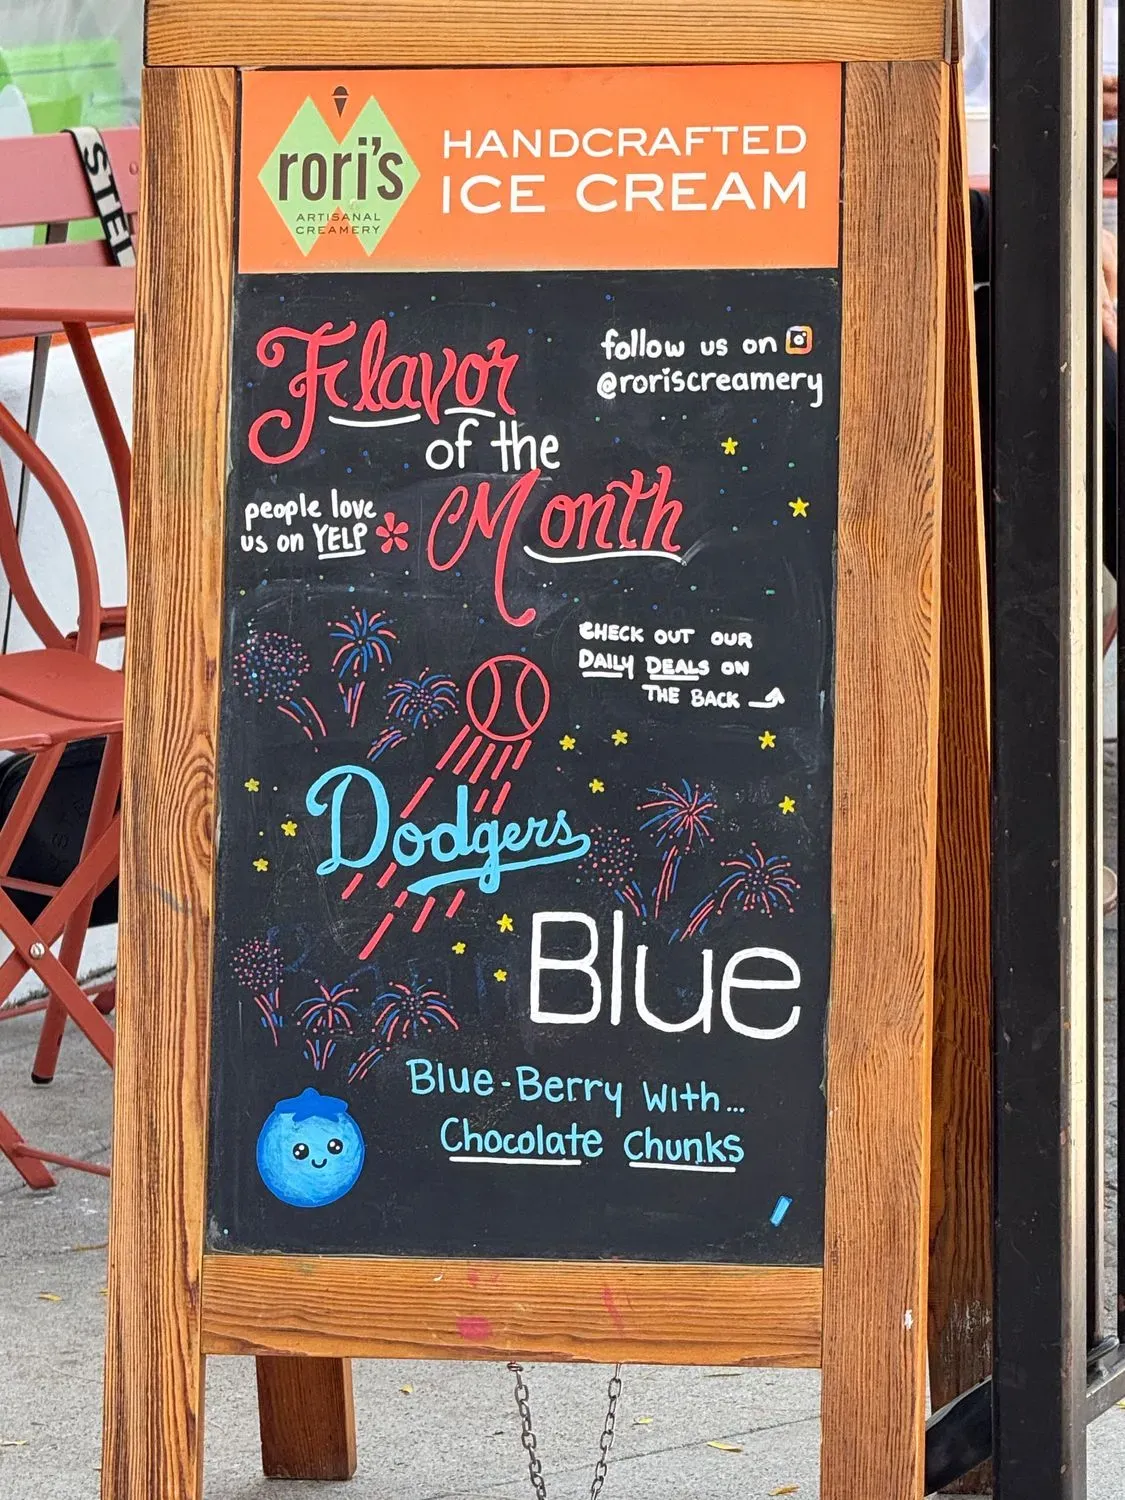 rori's
ARTISANAL
CREAMERY
HANDCRAFTED
ICE CREAM
Flavor
of the
Month
follow us on
@roriscreamery
people love
us on YELP
CHECK OUT OUR
DAILY DEALS ON
THE BACK
Dodgers
Blue
Blue-Berry With...
Chocolate Chunks